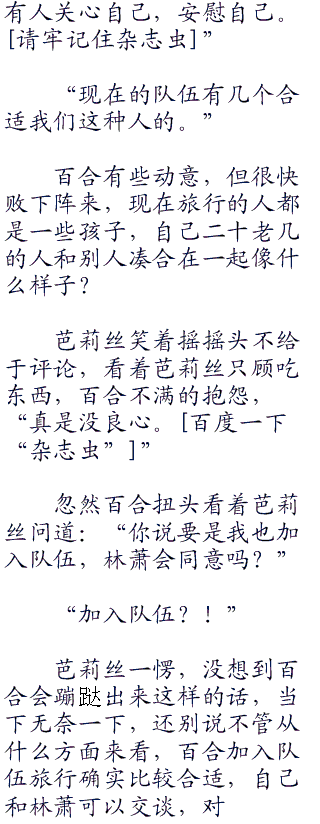 有人关心自己，安慰自己。
[请牢记住杂志虫]”
“现在的队伍有几个合
适我们这种人的。”
百合有些动意，但很快
败下阵来，现在旅行的人都
是一些孩子，自己二十老几
的人和别人凑合在一起像什
么样子？
芭莉丝笑着摇摇头不给
于评论，看着芭莉丝只顾吃
东西，百合不满的抱怨，
“真是没良心。[百度一下
“杂志虫”]”
忽然百合扭头看着芭莉
丝问道：“你说要是我也加
入队伍，林萧会同意吗？”
“加入队伍？！”
芭莉丝一愣，没想到百
合会蹦跶出来这样的话，当
下无奈一下，还别说不管从
什么方面来看，百合加入队
伍旅行确实比较合适，自己
和林萧可以交谈，对